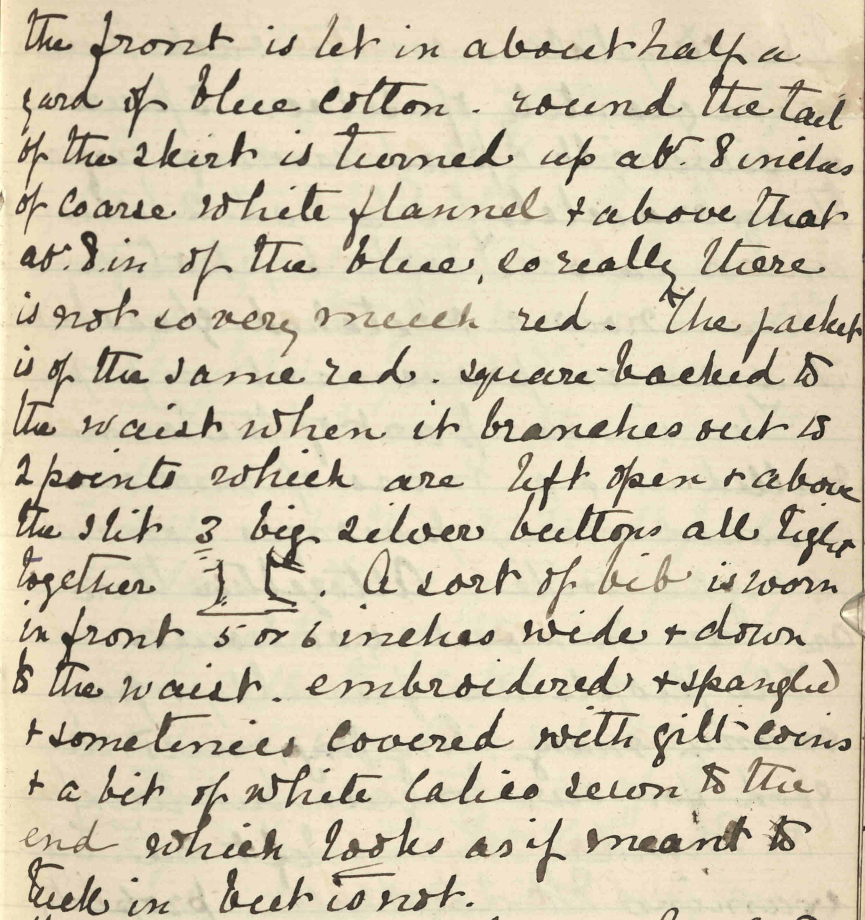 the front is let in about half a
yard of blue cotton. round the tail
of the skirt is turned up abt. 8 inches
of coarse white flannel & above that
abt. 8 in of the blue, so really there
is not so very much red. The jacket
is of the same red. square-backed to
the waist when it branches out to
2 points which are left open & above
the slit 3 big silver buttons all tight
together. A sort of bib is worn
in front 5 or 6 inches wide & down
to the waist. embroidered & spangled
& sometimes covered with gilt coins
& a bit of white calico sewn to the
end which looks as if meant to
tuck in but is not.